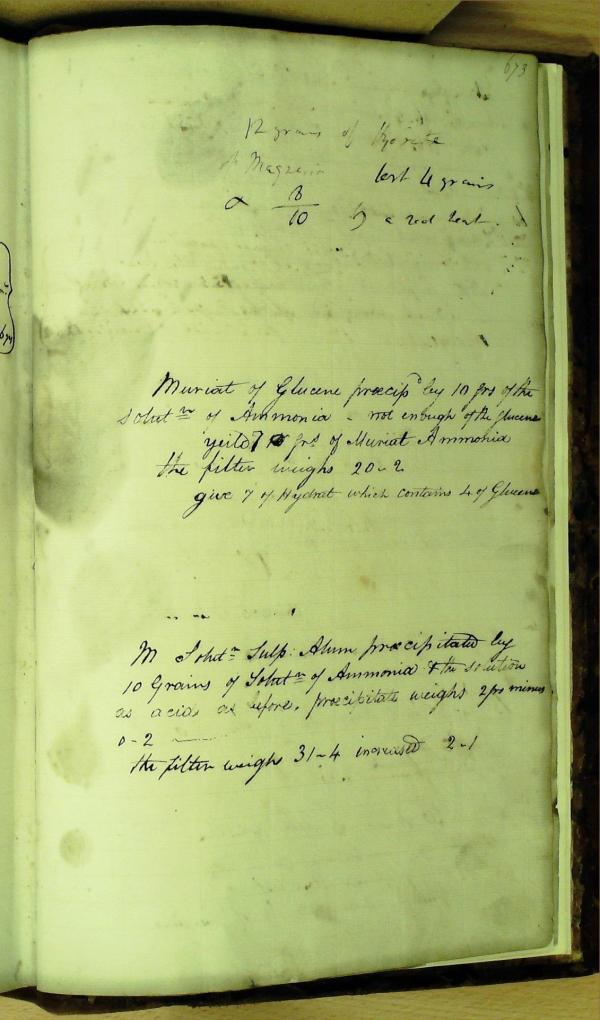 673
12 grains of Hydrate
of Magnesia lost 4 grains
8
10
a red heat.
Muriat of Glucene præcip^d by 10 grs of the
Solut^n of Ammonia - not enough of the glucene
yeild 7 grs of Muriat Ammonia
the filter weighs 20-2
give 7 of Hydrat which contains 4 of Glucene
M Solut^n Sulp: Alum præcipitated by
10 Grains of Solut^n of Ammonia & the solution
as acid as before. præcipitate weighs 2 grs minus
0-2
the filter weighs 31-4 increased 2-1